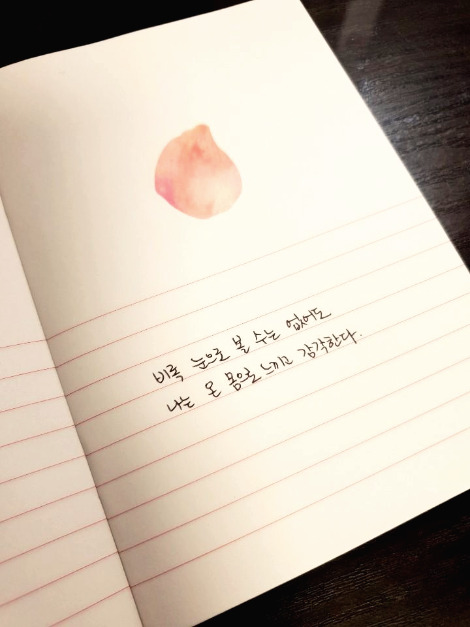 비록 눈으로 볼 수는 없어도
나는 온 몸으로 느끼고 감각한다.